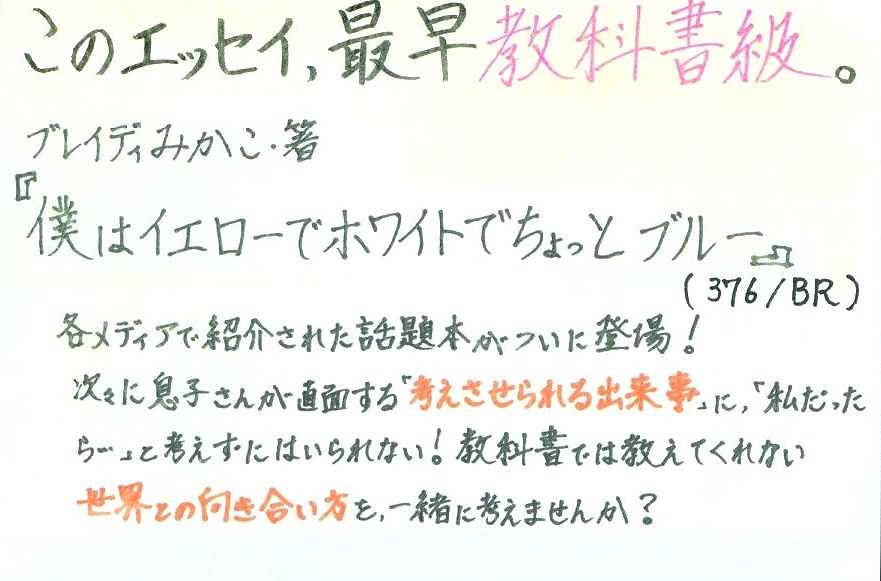 このエッセイ,最早教科書級。
ブレイディみかこ・著
『僕はイエローでホワイトでちょっとブルー』
(376/BR)
各メディアで紹介された話題本がついに登場!
次々に息子さんが直面する「考えさせられる出来事」に,「私だった
ら…」と考えずにはいられない!教科書では教えてくれない
世界との向き合い方を,一緒に考えませんか?